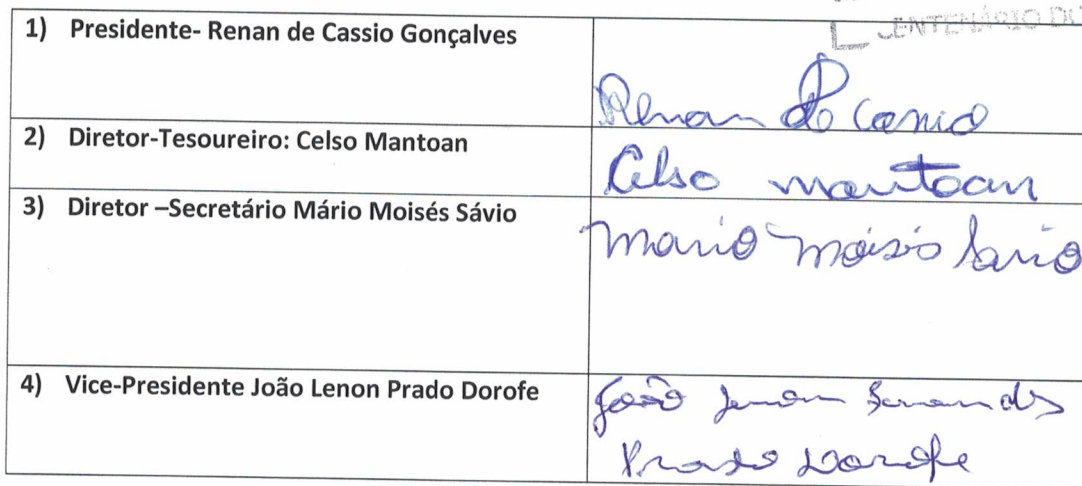 CENTENÁRIO DO
1) Presidente- Renan de Cassio Gonçalves
Renan de Cassio
2) Diretor-Tesoureiro: Celso Mantoan
Celso mantoan
3) Diretor –Secretário Mário Moisés Sávio
Mario Moisés Savio
4) Vice-Presidente João Lenon Prado Dorofe
João Lenon Fernandes
Prado Dorofe